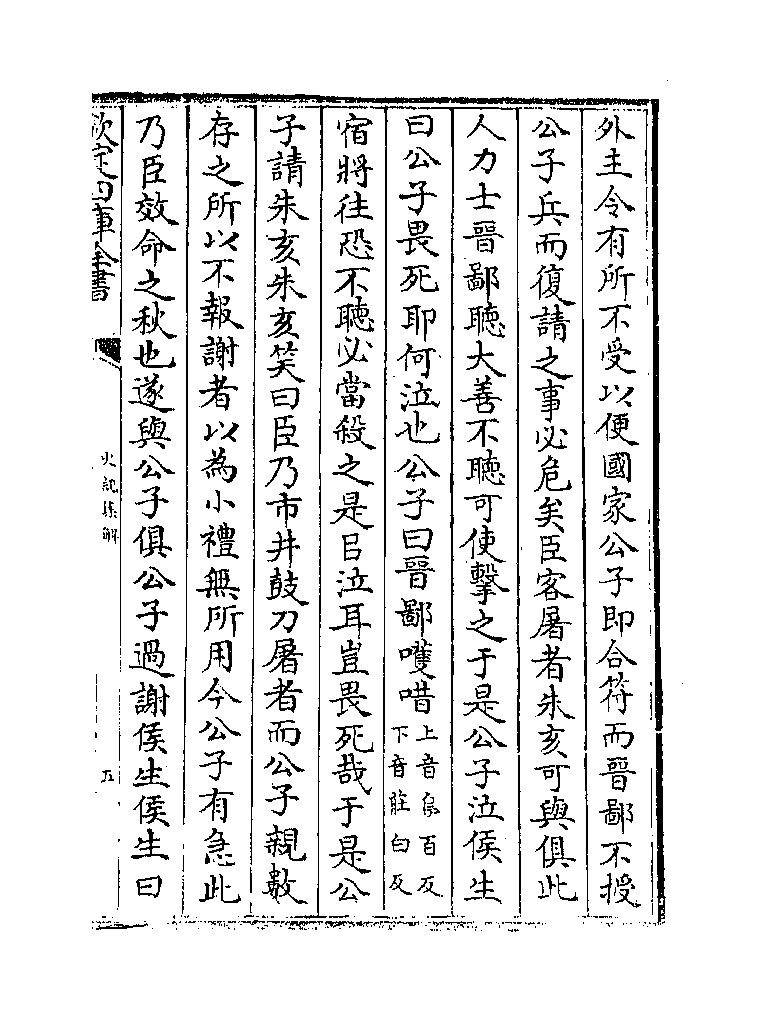 外主令有所不受以便國家公子即合符而晉鄙不授
公子兵而復請之事必危矣臣客屠者朱亥可與俱此
人力士晉鄙聽大善不聽可使擊之于是公子泣侯生
曰公子畏死耶何泣也公子曰晉鄙嚄唶
上音烏百反
下音莊白反
宿將往恐不聽必當殺之是㠯泣耳豈畏死哉于是公
子請朱亥朱亥笑曰臣乃市井鼓刀屠者而公子親數
存之所以不報謝者以為小禮無所用今公子有急此
乃臣效命之秋也遂與公子俱公子過謝侯生侯生曰
欽定四庫全書
史記集解
五